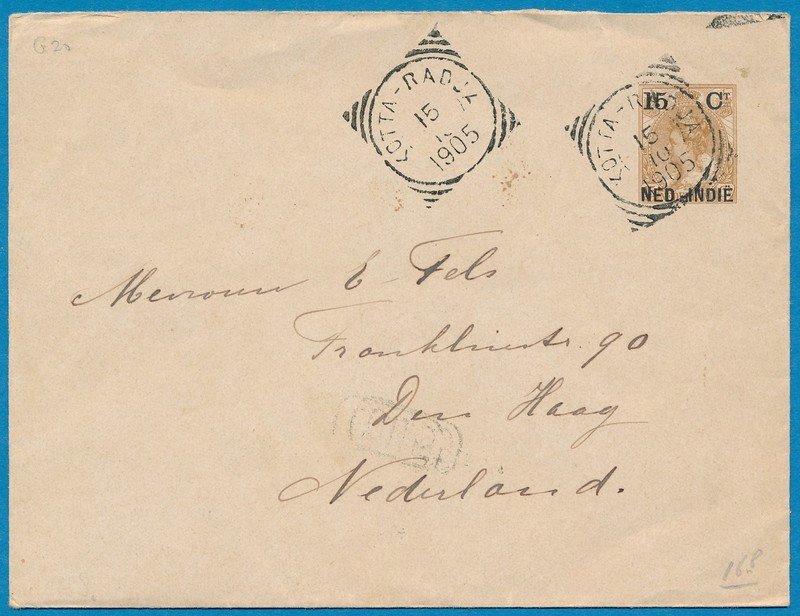 G 20
KOTTA-RADJA
15
1905
KOTTA-RADJA
15
10
1905
15 CT
NED.-INDIË
Mevrouw E. Fels
Franklinstr. 90
Den Haag
Nederland.
168